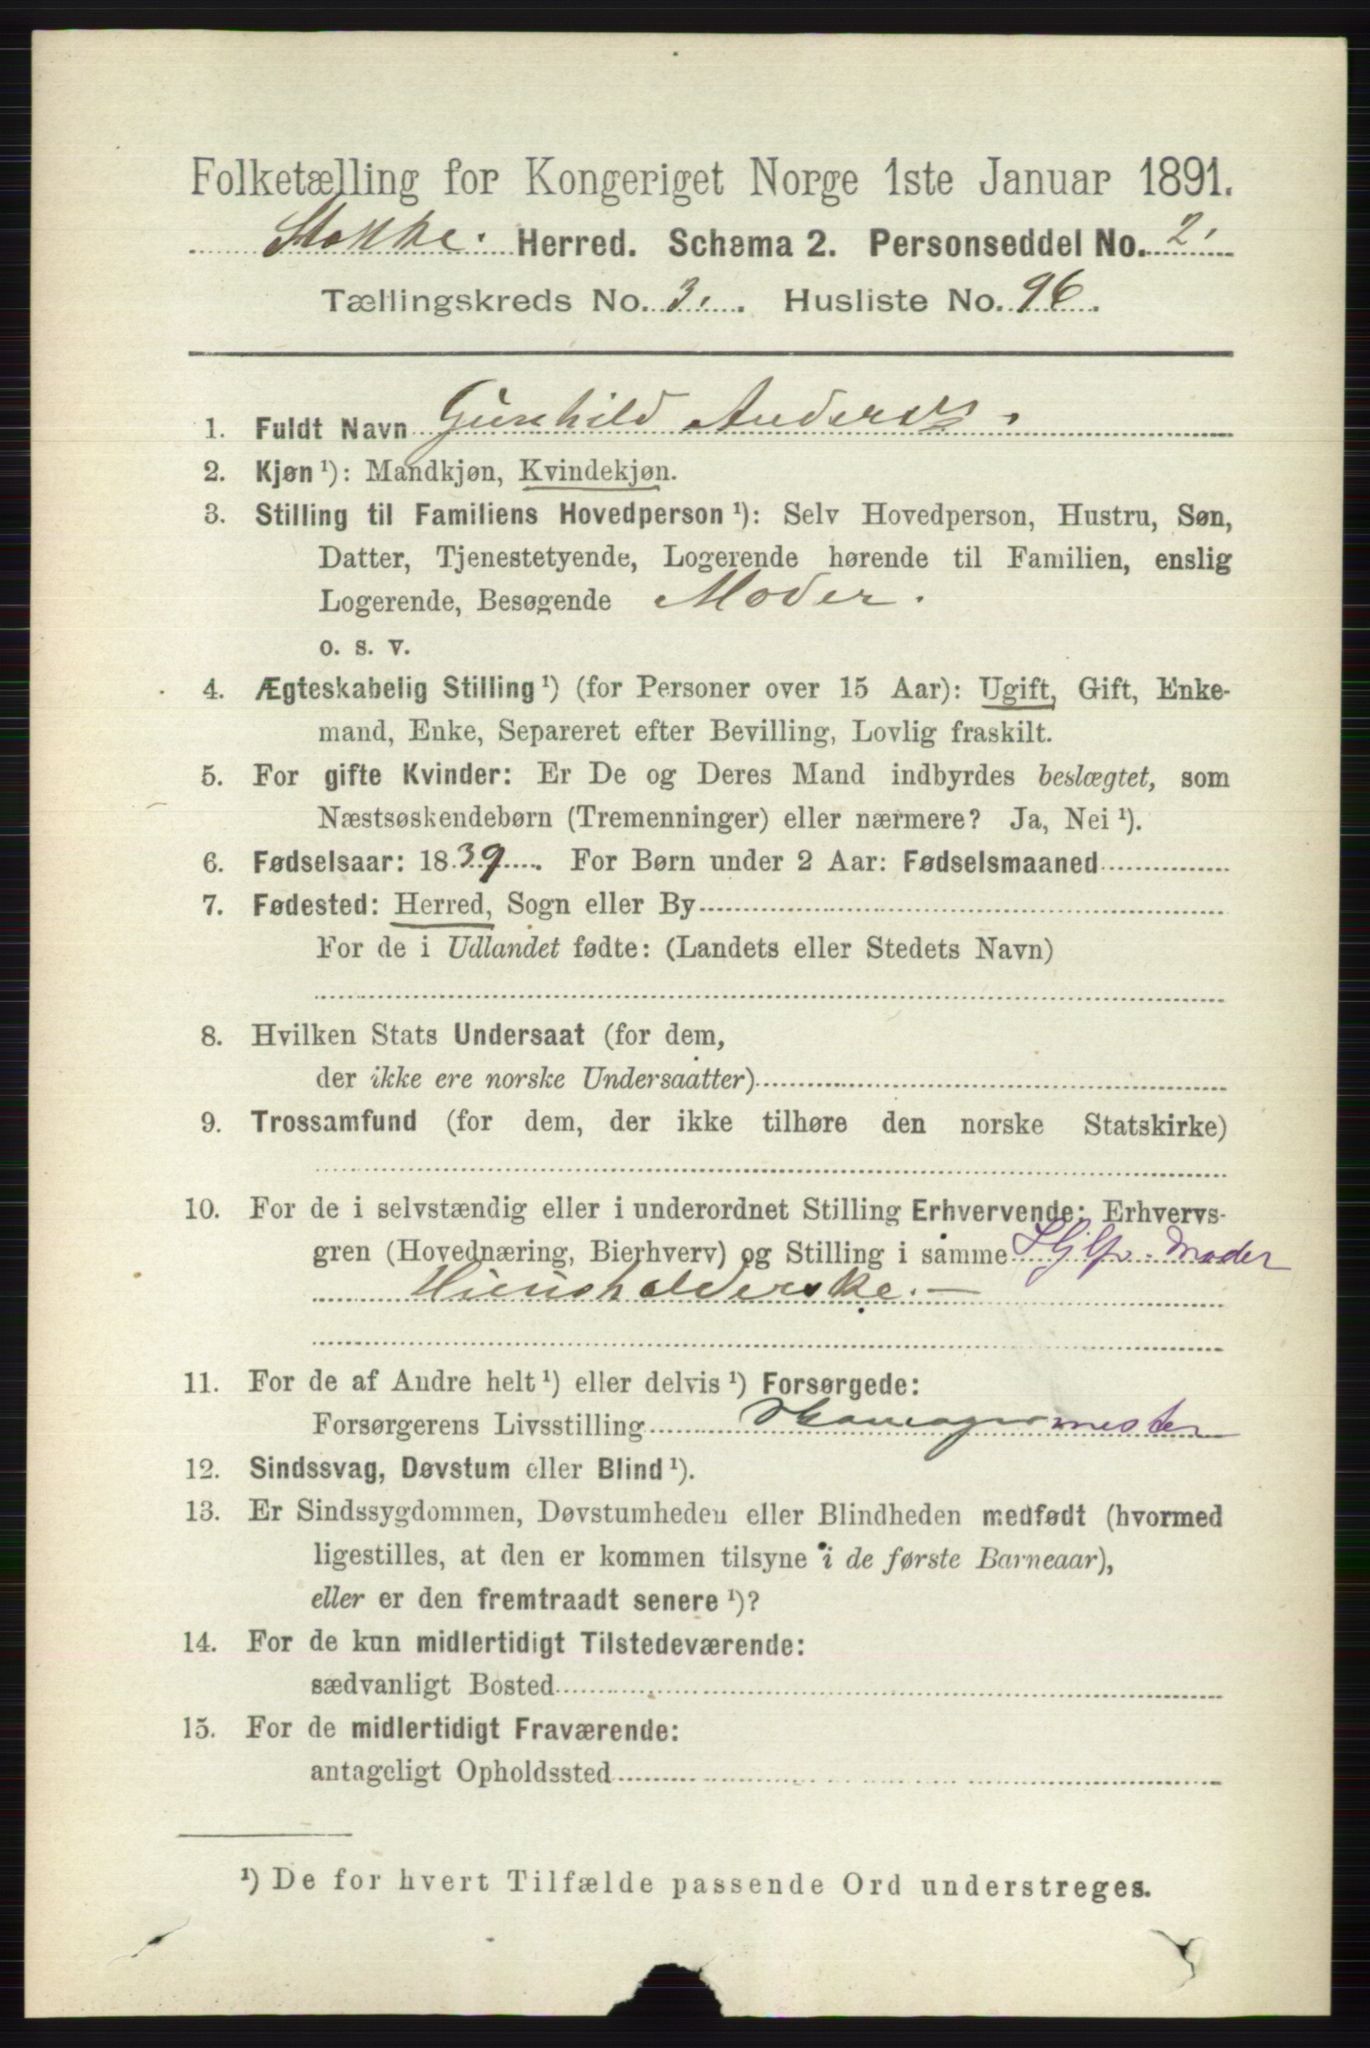 Folketælling for Kongeriget Norge 1ste Januar 1891.
Stokke. Herred. Schema 2. Personseddel No. 2.
Tællingskreds No. 3. Husliste No. 96.
1. Fuldt Navn Gunhild Anders
2. Kjøn ¹): Mandkjøn, Kvindekjøn.
3. Stilling til Familiens Hovedperson ¹): Selv Hovedperson, Hustru, Søn,
Datter, Tjenestetyende, Logerende hørende til Familien, enslig
Logerende, Besøgende Moder.
o. s. v.
4. Ægteskabelig Stilling ¹) (for Personer over 15 Aar): Ugift, Gift, Enke-
mand, Enke, Separeret efter Bevilling, Lovlig fraskilt.
5. For gifte Kvinder: Er De og Deres Mand indbyrdes beslægtet, som
Næstsøskendebørn (Tremenninger) eller nærmere? Ja, Nei ¹).
6. Fødselsaar: 1839. For Børn under 2 Aar: Fødselsmaaned
7. Fødested: Herred, Sogn eller By
For de i Udlandet fødte: (Landets eller Stedets Navn)
8. Hvilken Stats Undersaat (for dem,
der ikke ere norske Undersaatter)
9. Trossamfund (for dem, der ikke tilhøre den norske Statskirke)
10. For de i selvstændig eller i underordnet Stilling Erhvervende: Erhvervs-
gren (Hovednæring, Bierhverv) og Stilling i samme Hjlp. Moder
Huusholderske. —
11. For de af Andre helt ¹) eller delvis ¹) Forsørgede:
Forsørgerens Livsstilling mester
12. Sindssvag, Døvstum eller Blind ¹).
13. Er Sindssygdommen, Døvstumheden eller Blindheden medfødt (hvormed
ligestilles, at den er kommen tilsyne i de første Barneaar),
eller er den fremtraadt senere ¹)?
14. For de kun midlertidigt Tilstedeværende:
sædvanligt Bosted
15. For de midlertidigt Fraværende:
antageligt Opholdssted
¹) De for hvert Tilfælde passende Ord understreges.